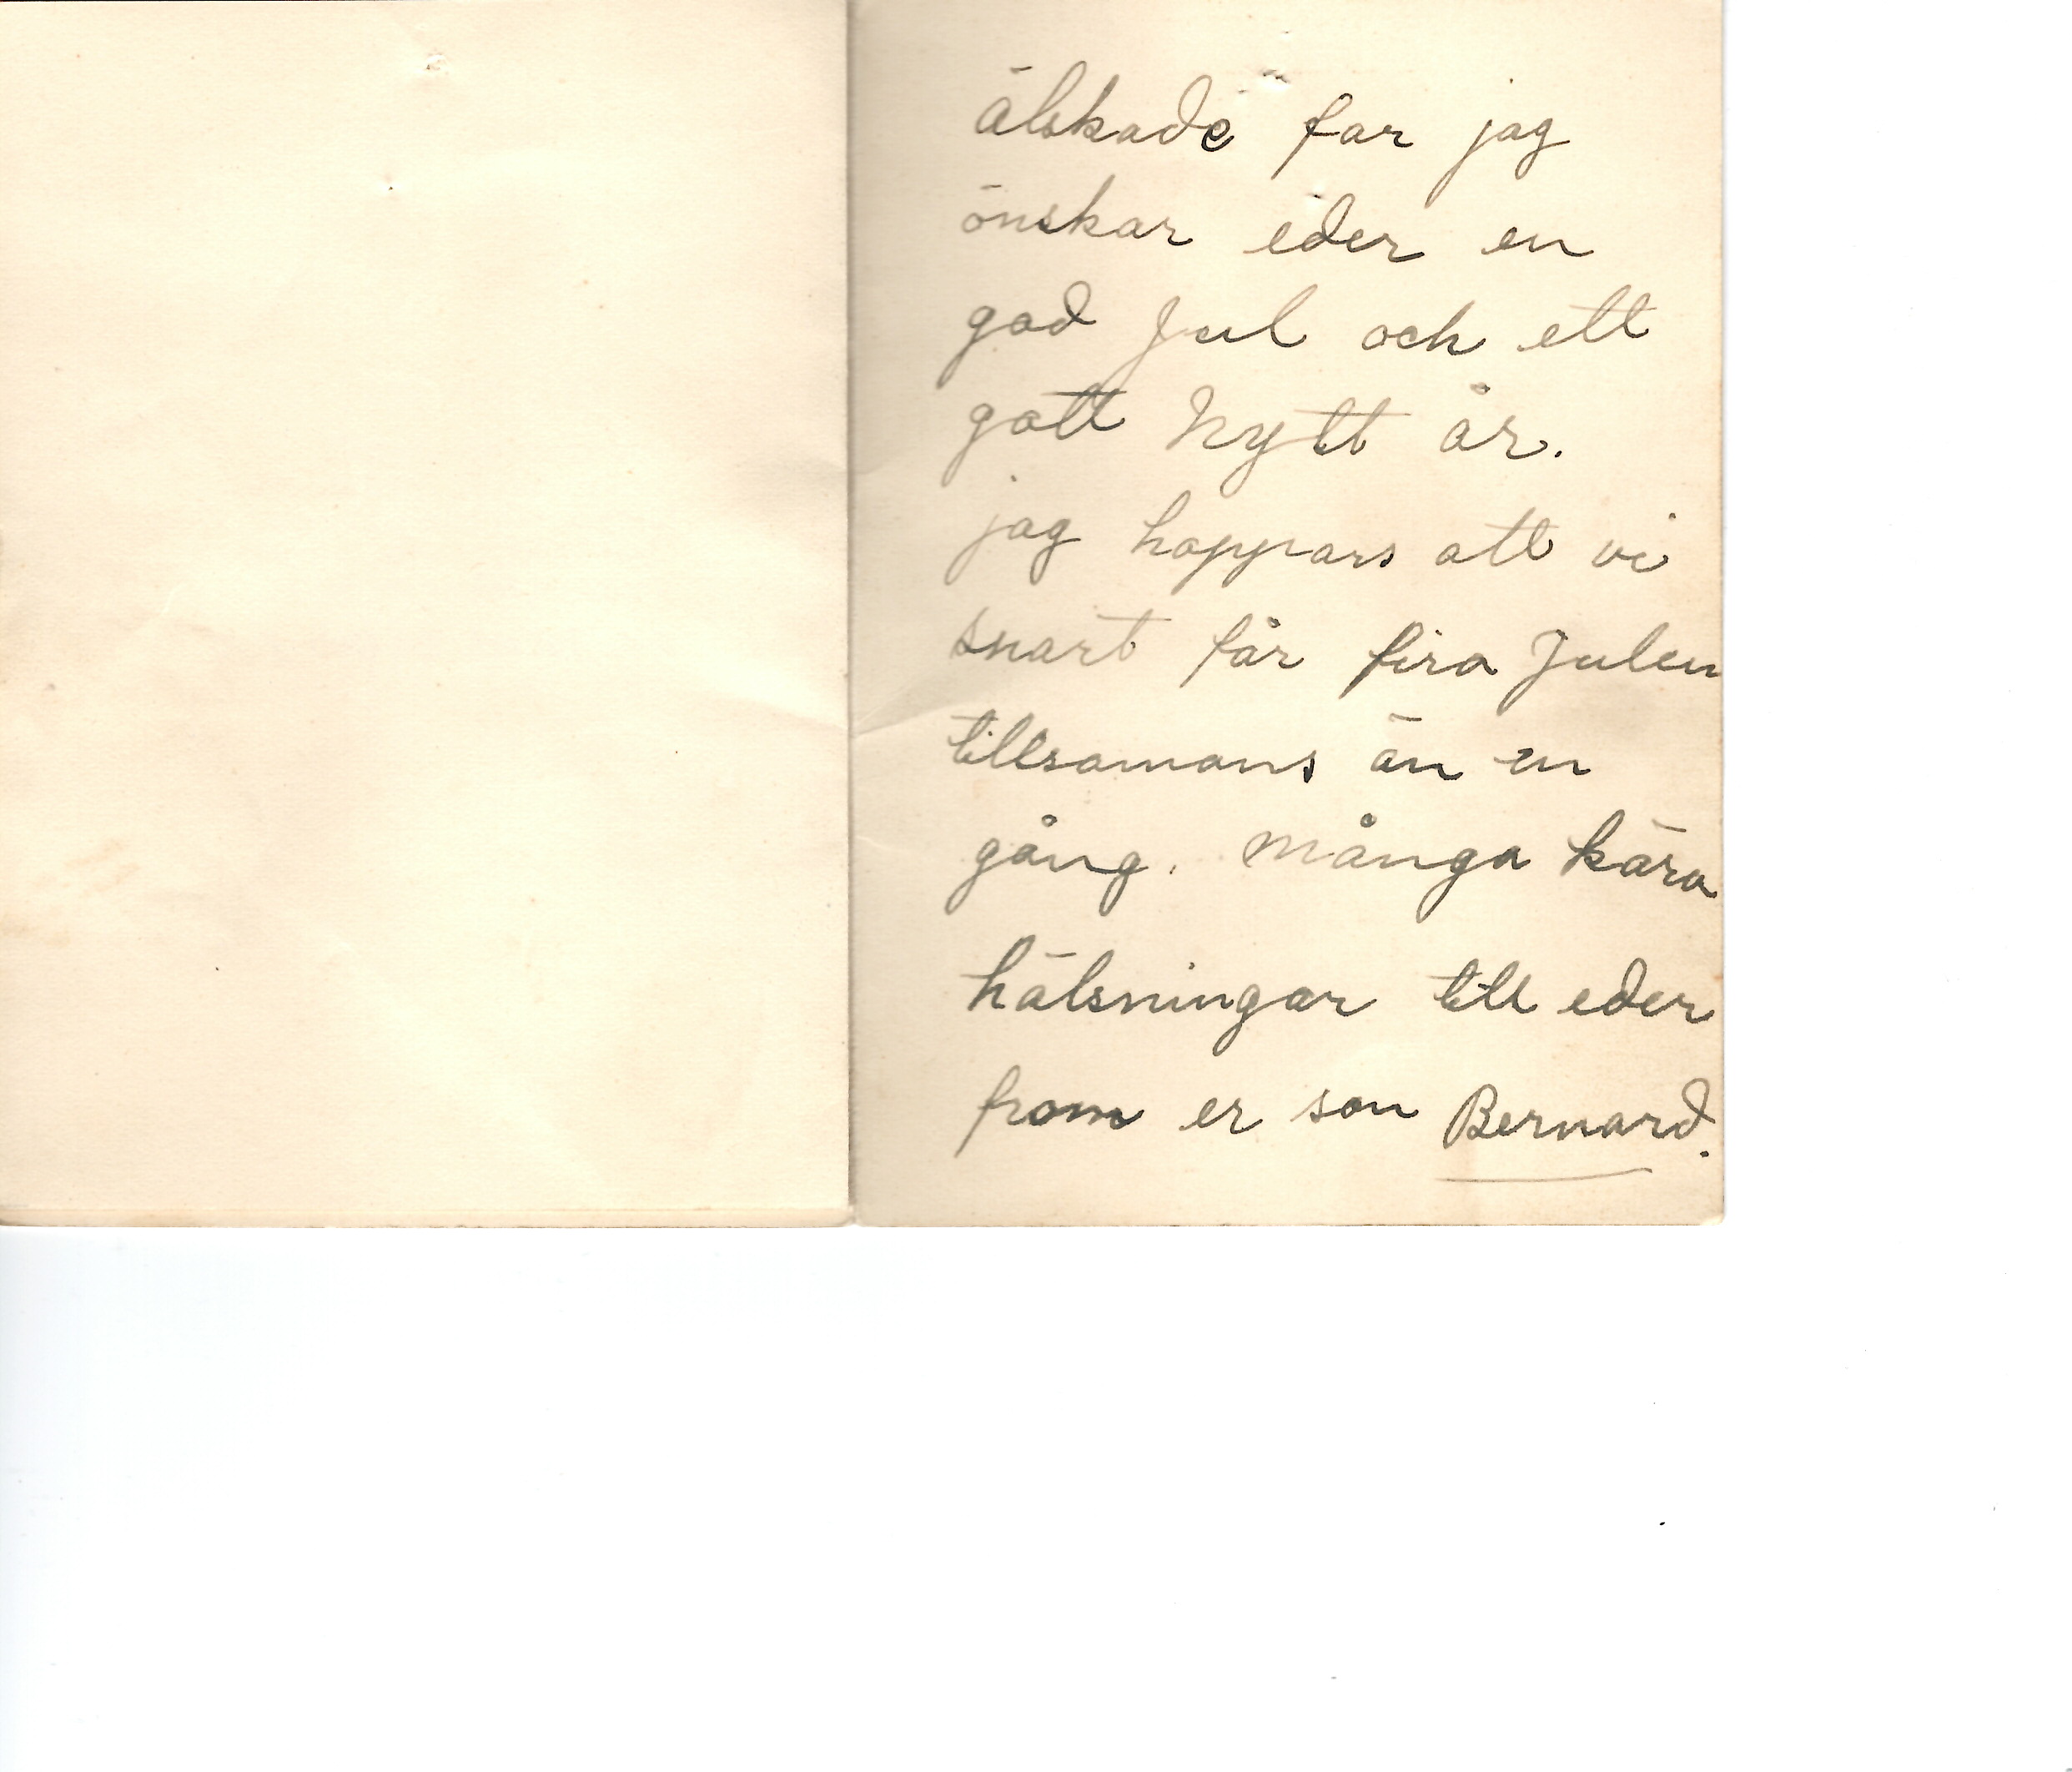 älskade far jag
önskar eder en
god Jul och ett
gott Nytt år.
jag hoppars att vi
snart får fira Julen
tillsamans än en
gång. många kära
hälsningar till eder
from er son Bernard.